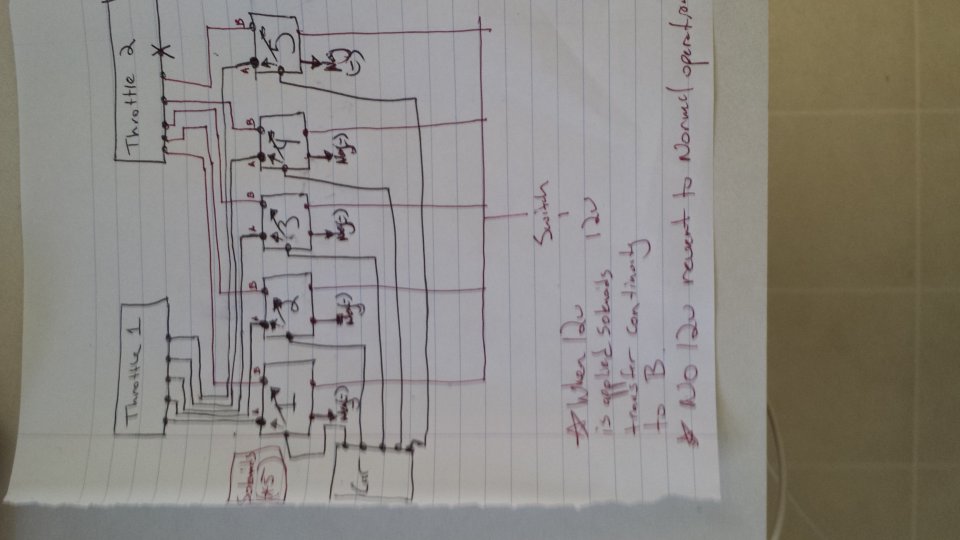 Throttle 1 Throttle 2
X
Solnoids
x5
A B A B A B A B A B
1 2 3 4 5
Neg(-) Neg(-) Neg(-) Neg(-) Neg
(-)
Car
Switch
12v
* When 12v
is applied Solnoids
transfer continuity
to B
* No 12v revert to Normal operatio